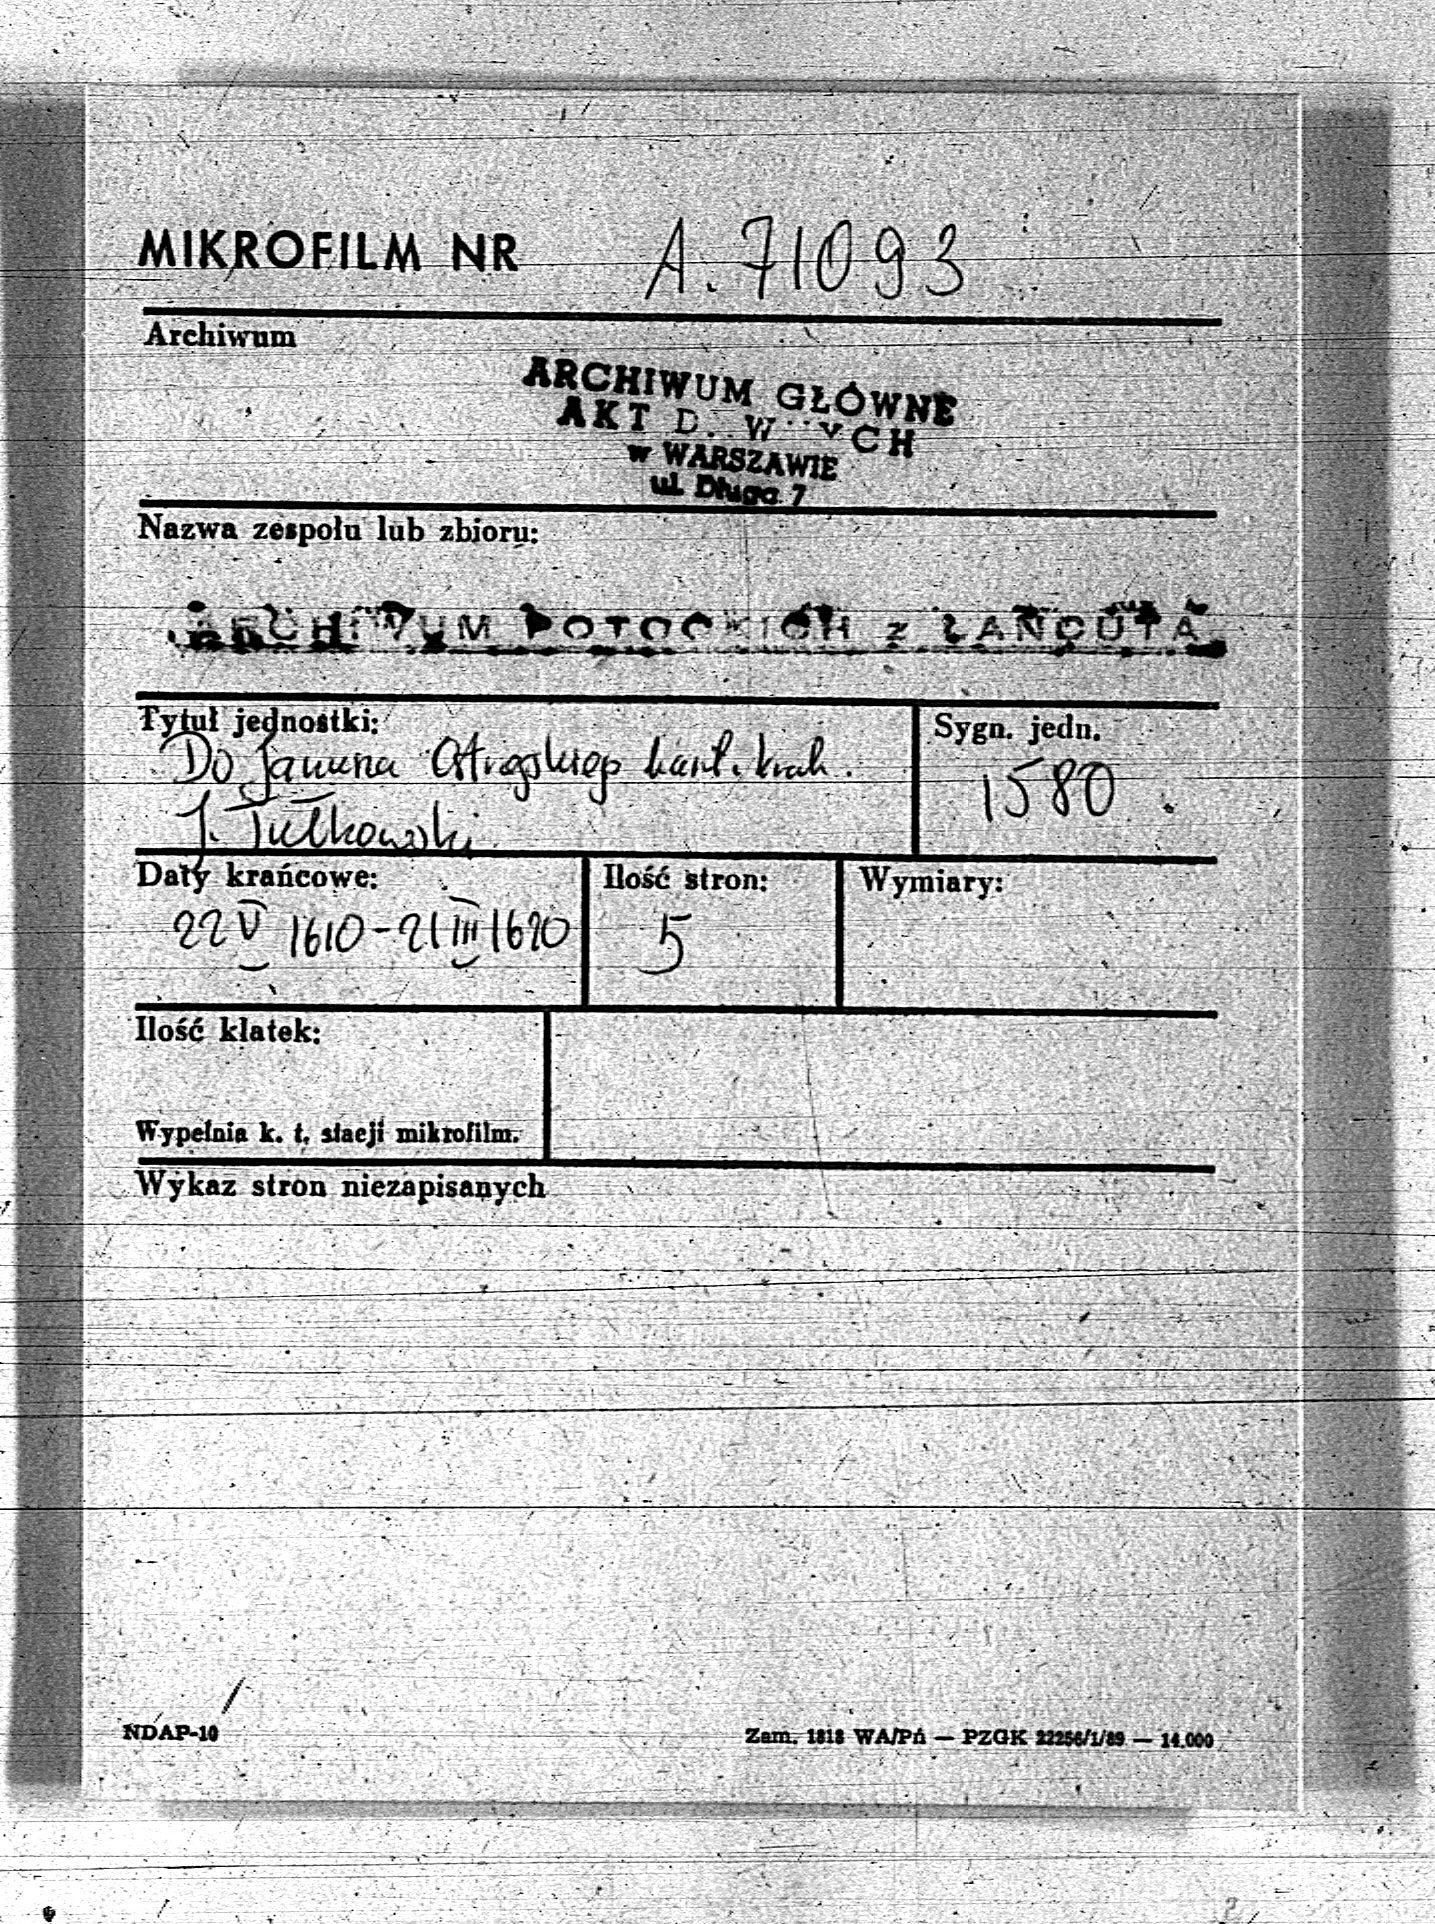 MIKROFILM NR A. 71093
Archiwum
ARCHIWUM GŁÓWNE
AKT D. W YCH
w WARSZAWIE
ul. Długa 7
Nazwa zespołu lub zbioru:
ARCHIWUM POTOCKICH z ŁAŃCUTA
Tytuł jednostki:
Sygn. jedn.
Do Janusza Ostrogskiego kaszt. krak.
1580.
J. Tułkowski
Daty krańcowe:
Ilość stron:
Wymiary:
22 V 1610 - 21 III 1620
5
Ilość klatek:
Wypełnia k. t. stacji mikrofilm.
Wykaz stron niezapisanych
NDAP-10
Zam. 1818 WA/Pń — PZGK 22256/1/89 — 14.000